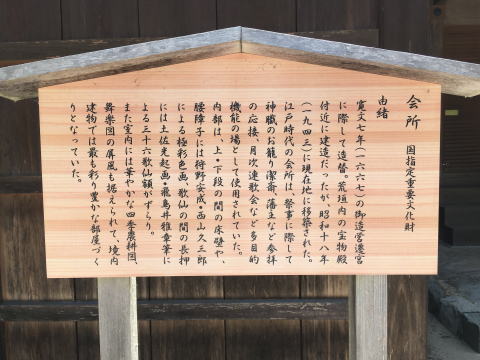 会所 国指定重要文化財
由緒
寛文七年(一六六七)の御造営遷宮
に際して造替。荒垣内の宝物殿
付近に建造だったが、昭和十八年
(一九四三)に現在地に移築された。
江戸時代の会所は、祭事に際して
神職のお籠り潔斎、藩主など参拝
の応接、月次連歌会など多目的
機能の場として使用されていた。
内部は、上・下段の間の床壁や、
腰障子には狩野安成・西山久三郎
による極彩色画、歌仙の間の長押
には土佐光起画・飛鳥井雅章筆に
よる三十六歌仙額がずらり。
また室内には華やかな四季農耕図、
舞楽図の屏風も据えられて、境内
建物では最も彩り豊かな部屋づく
りとなっていた。